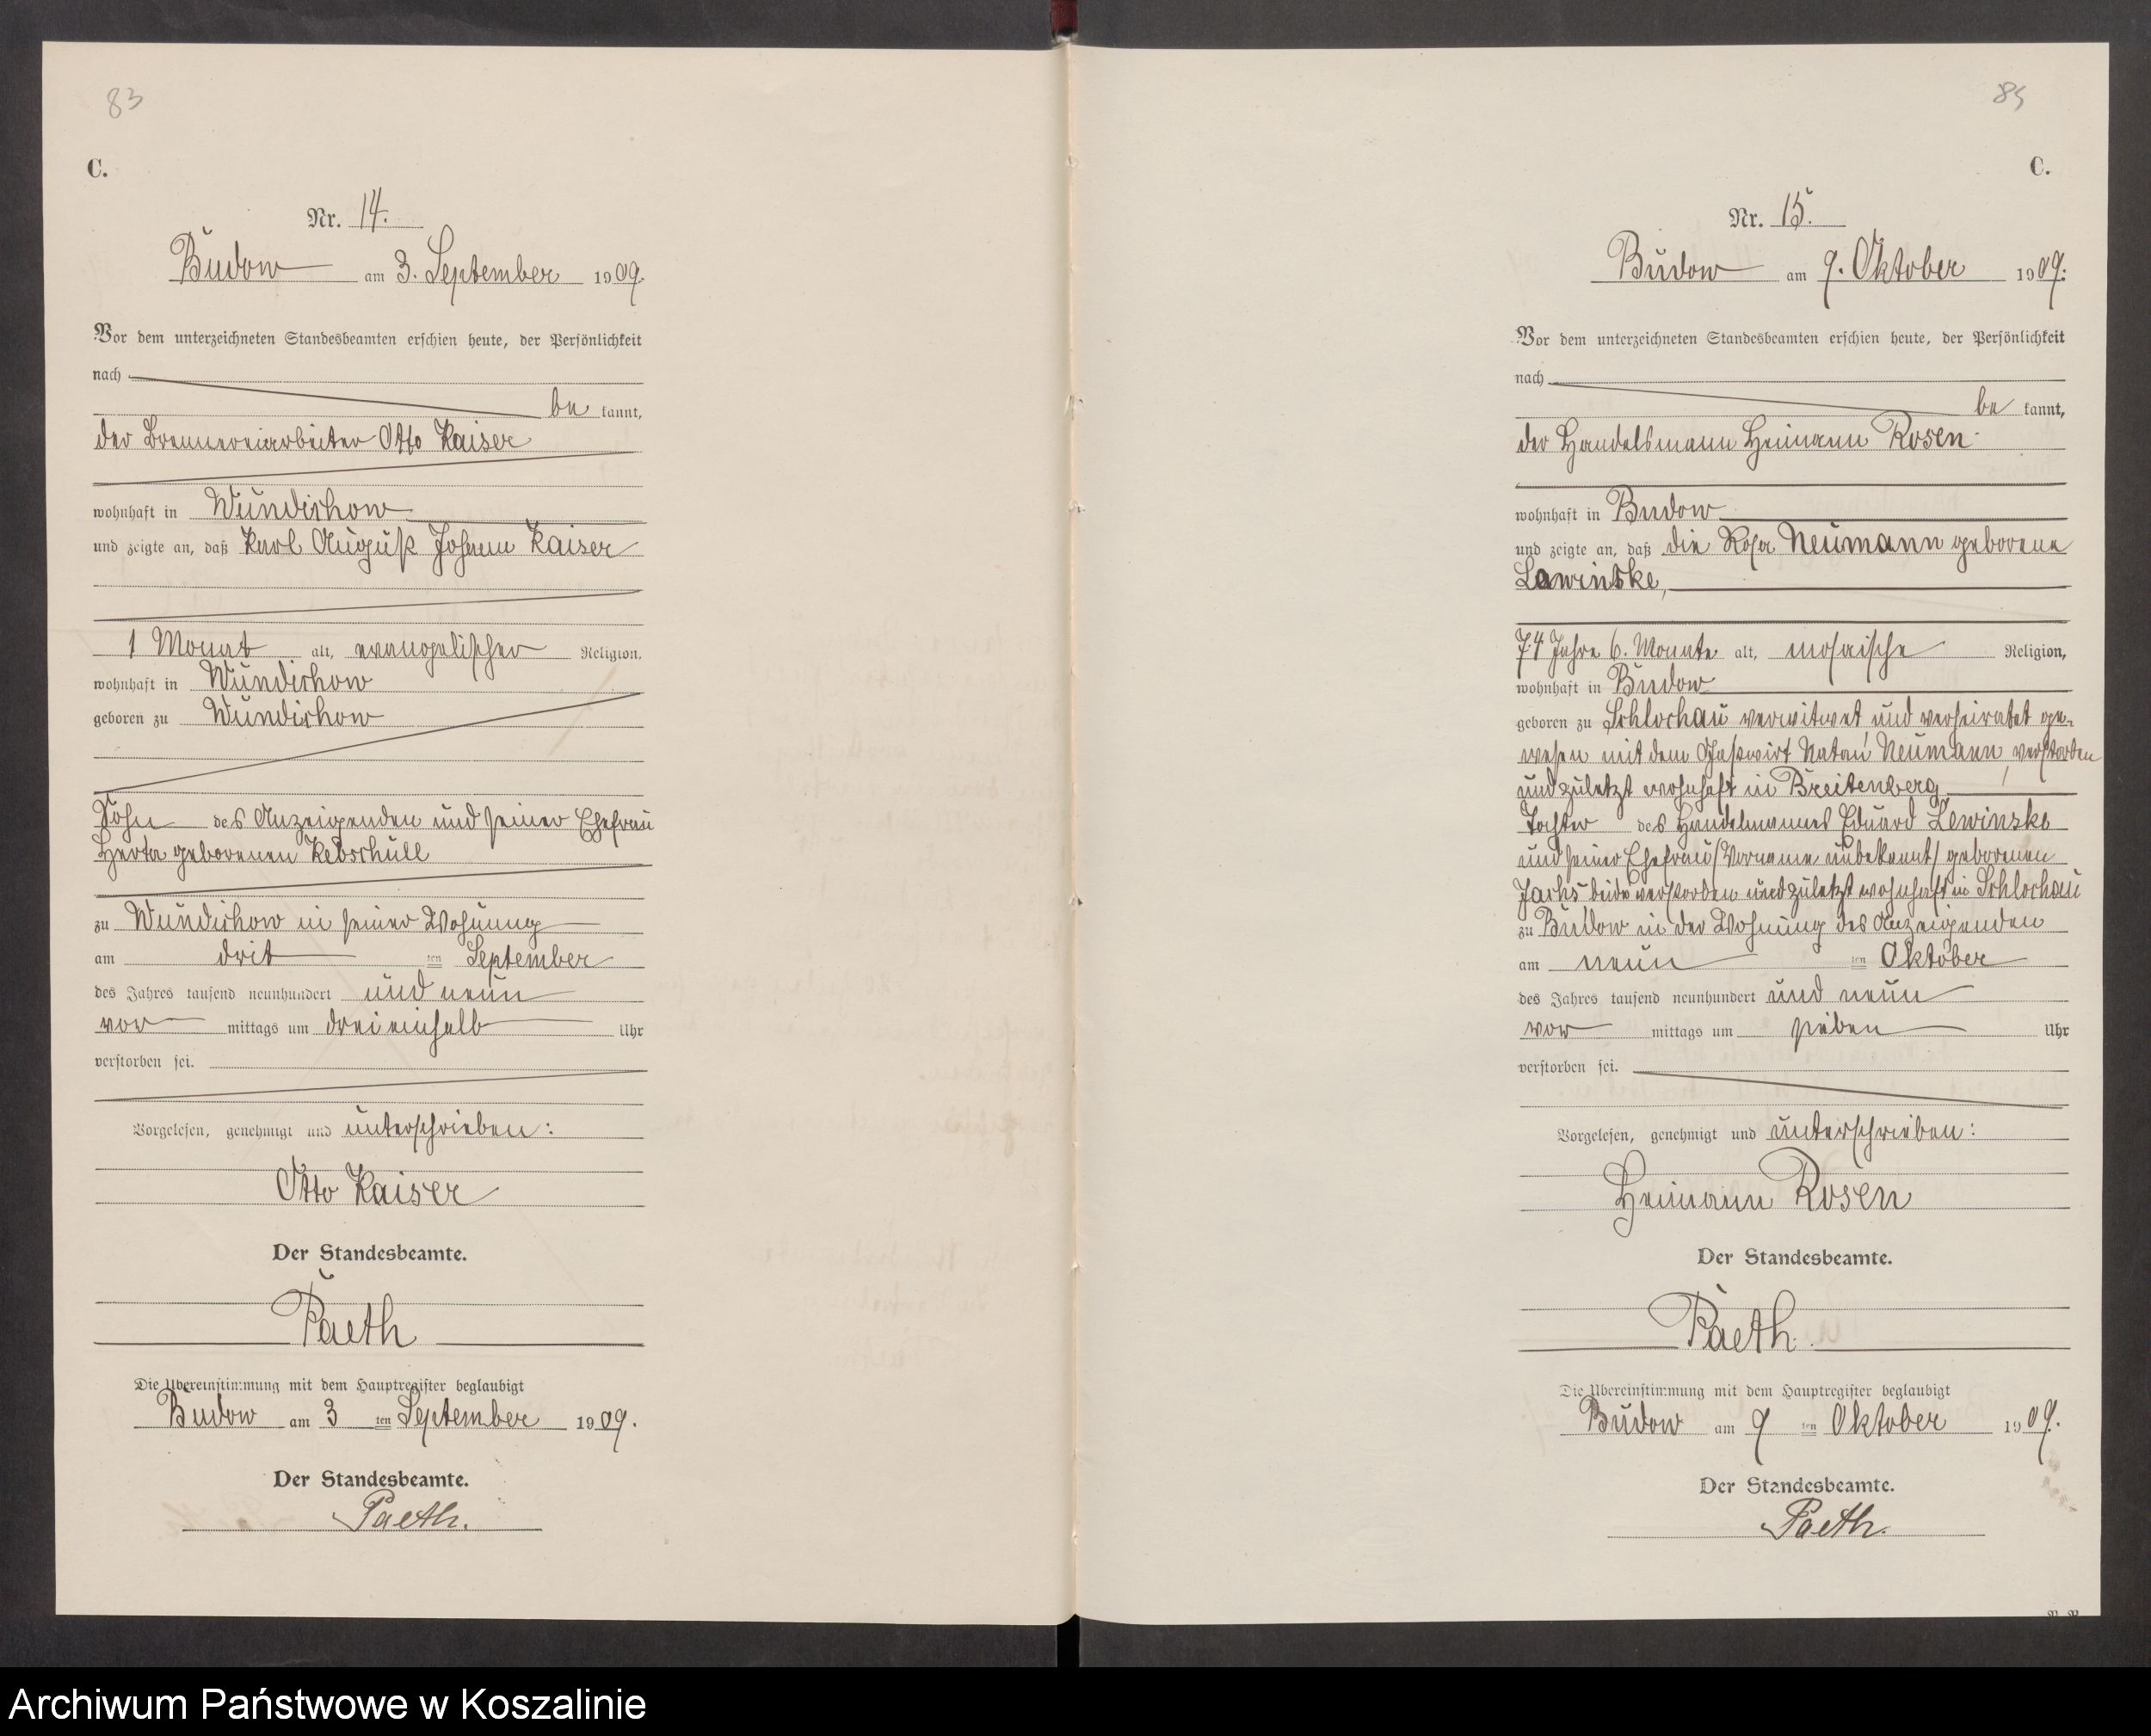 83
C.
Nr. 14.
Budow am 3. September 1909.
Vor dem unterzeichneten Standesbeamten erschien heute, der Persönlichkeit
nach
be kannt,
der Brennereiarbeiter Otto Kaiser
wohnhaft in Wundichow
und zeigte an, daß Karl August Johann Kaiser
1 Monat alt, evangelischer Religion,
wohnhaft in Wundichow
geboren zu Wundichow
Sohn des Anzeigenden und seiner Ehefrau
Herta geborenen Rebschull
zu Wundichow in seiner Wohnung
am drit ten September
des Jahres tausend neunhundert und neun
vor mittags um dreieinhalb Uhr
verstorben sei.
Vorgelesen, genehmigt und unterschrieben:
Otto Kaiser
Der Standesbeamte.
Paeth
Die Übereinstimmung mit dem Hauptregister beglaubigt
Budow am 3 ten September 1909.
Der Standesbeamte.
Paeth.
C.
Nr. 15.
Budow am 9. Oktober 1909.
Vor dem unterzeichneten Standesbeamten erschien heute, der Persönlichkeit
nach
be kannt,
der Handelsmann Heimann Rosen
wohnhaft in Budow
und zeigte an, daß die Rosa Neumann geborene
Lewinske,
74 Jahre 6. Monate alt, mosaische Religion,
wohnhaft in Budow
geboren zu Schlochau verwitwet und verheiratet ge-
wesen mit dem Gastwirt Natan Neumann, verstorben
und zuletzt wohnhaft in Breitenberg
Tochter des Handelmannes Eduard Lewinske
und seiner Ehefrau (Vorname unbekannt) geborenen
Jachs beide verstorben und zuletzt wohnhaft in Schlochau
zu Budow in der Wohnung des Anzeigenden
am neun ten Oktober
des Jahres tausend neunhundert und neun
vor mittags um sieben Uhr
verstorben sei.
Vorgelesen, genehmigt und unterschrieben:
Heimann Rosen
Der Standesbeamte.
Paeth.
Die Übereinstimmung mit dem Hauptregister beglaubigt
Budow am 9 ten Oktober 1909.
Der Standesbeamte.
Paeth.
Archiwum Państwowe w Koszalinie